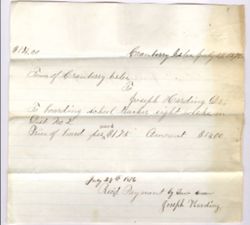 Cranberry Isles July
Town of Cranberry Isles
To
Joseph Harding Dr.
To boarding school teacher eight weeks in
Dist No. 2
Price of board per week $1.75 Amount $14.00
July 29th 1876
Recd Payment by
Joseph Harding